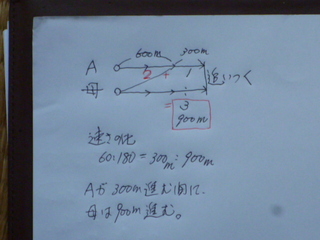 600m 300m
A 2 + 1 追いつく
母 :
= 3
900m
速さの比
60:180 = 300m : 900m
Aが300m進む間に、
母は900m進む。